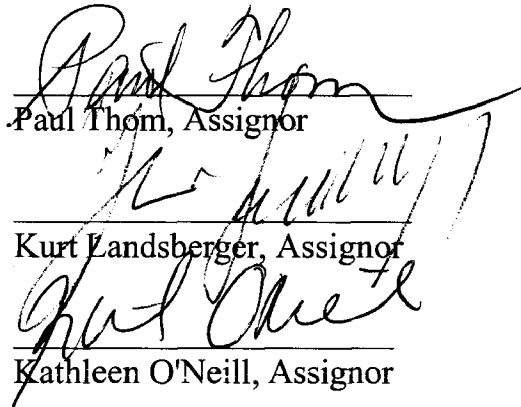 Paul Thom
Paul Thom, Assignor
Kurt Landsberger, Assignor
Kathleen O'Neill, Assignor